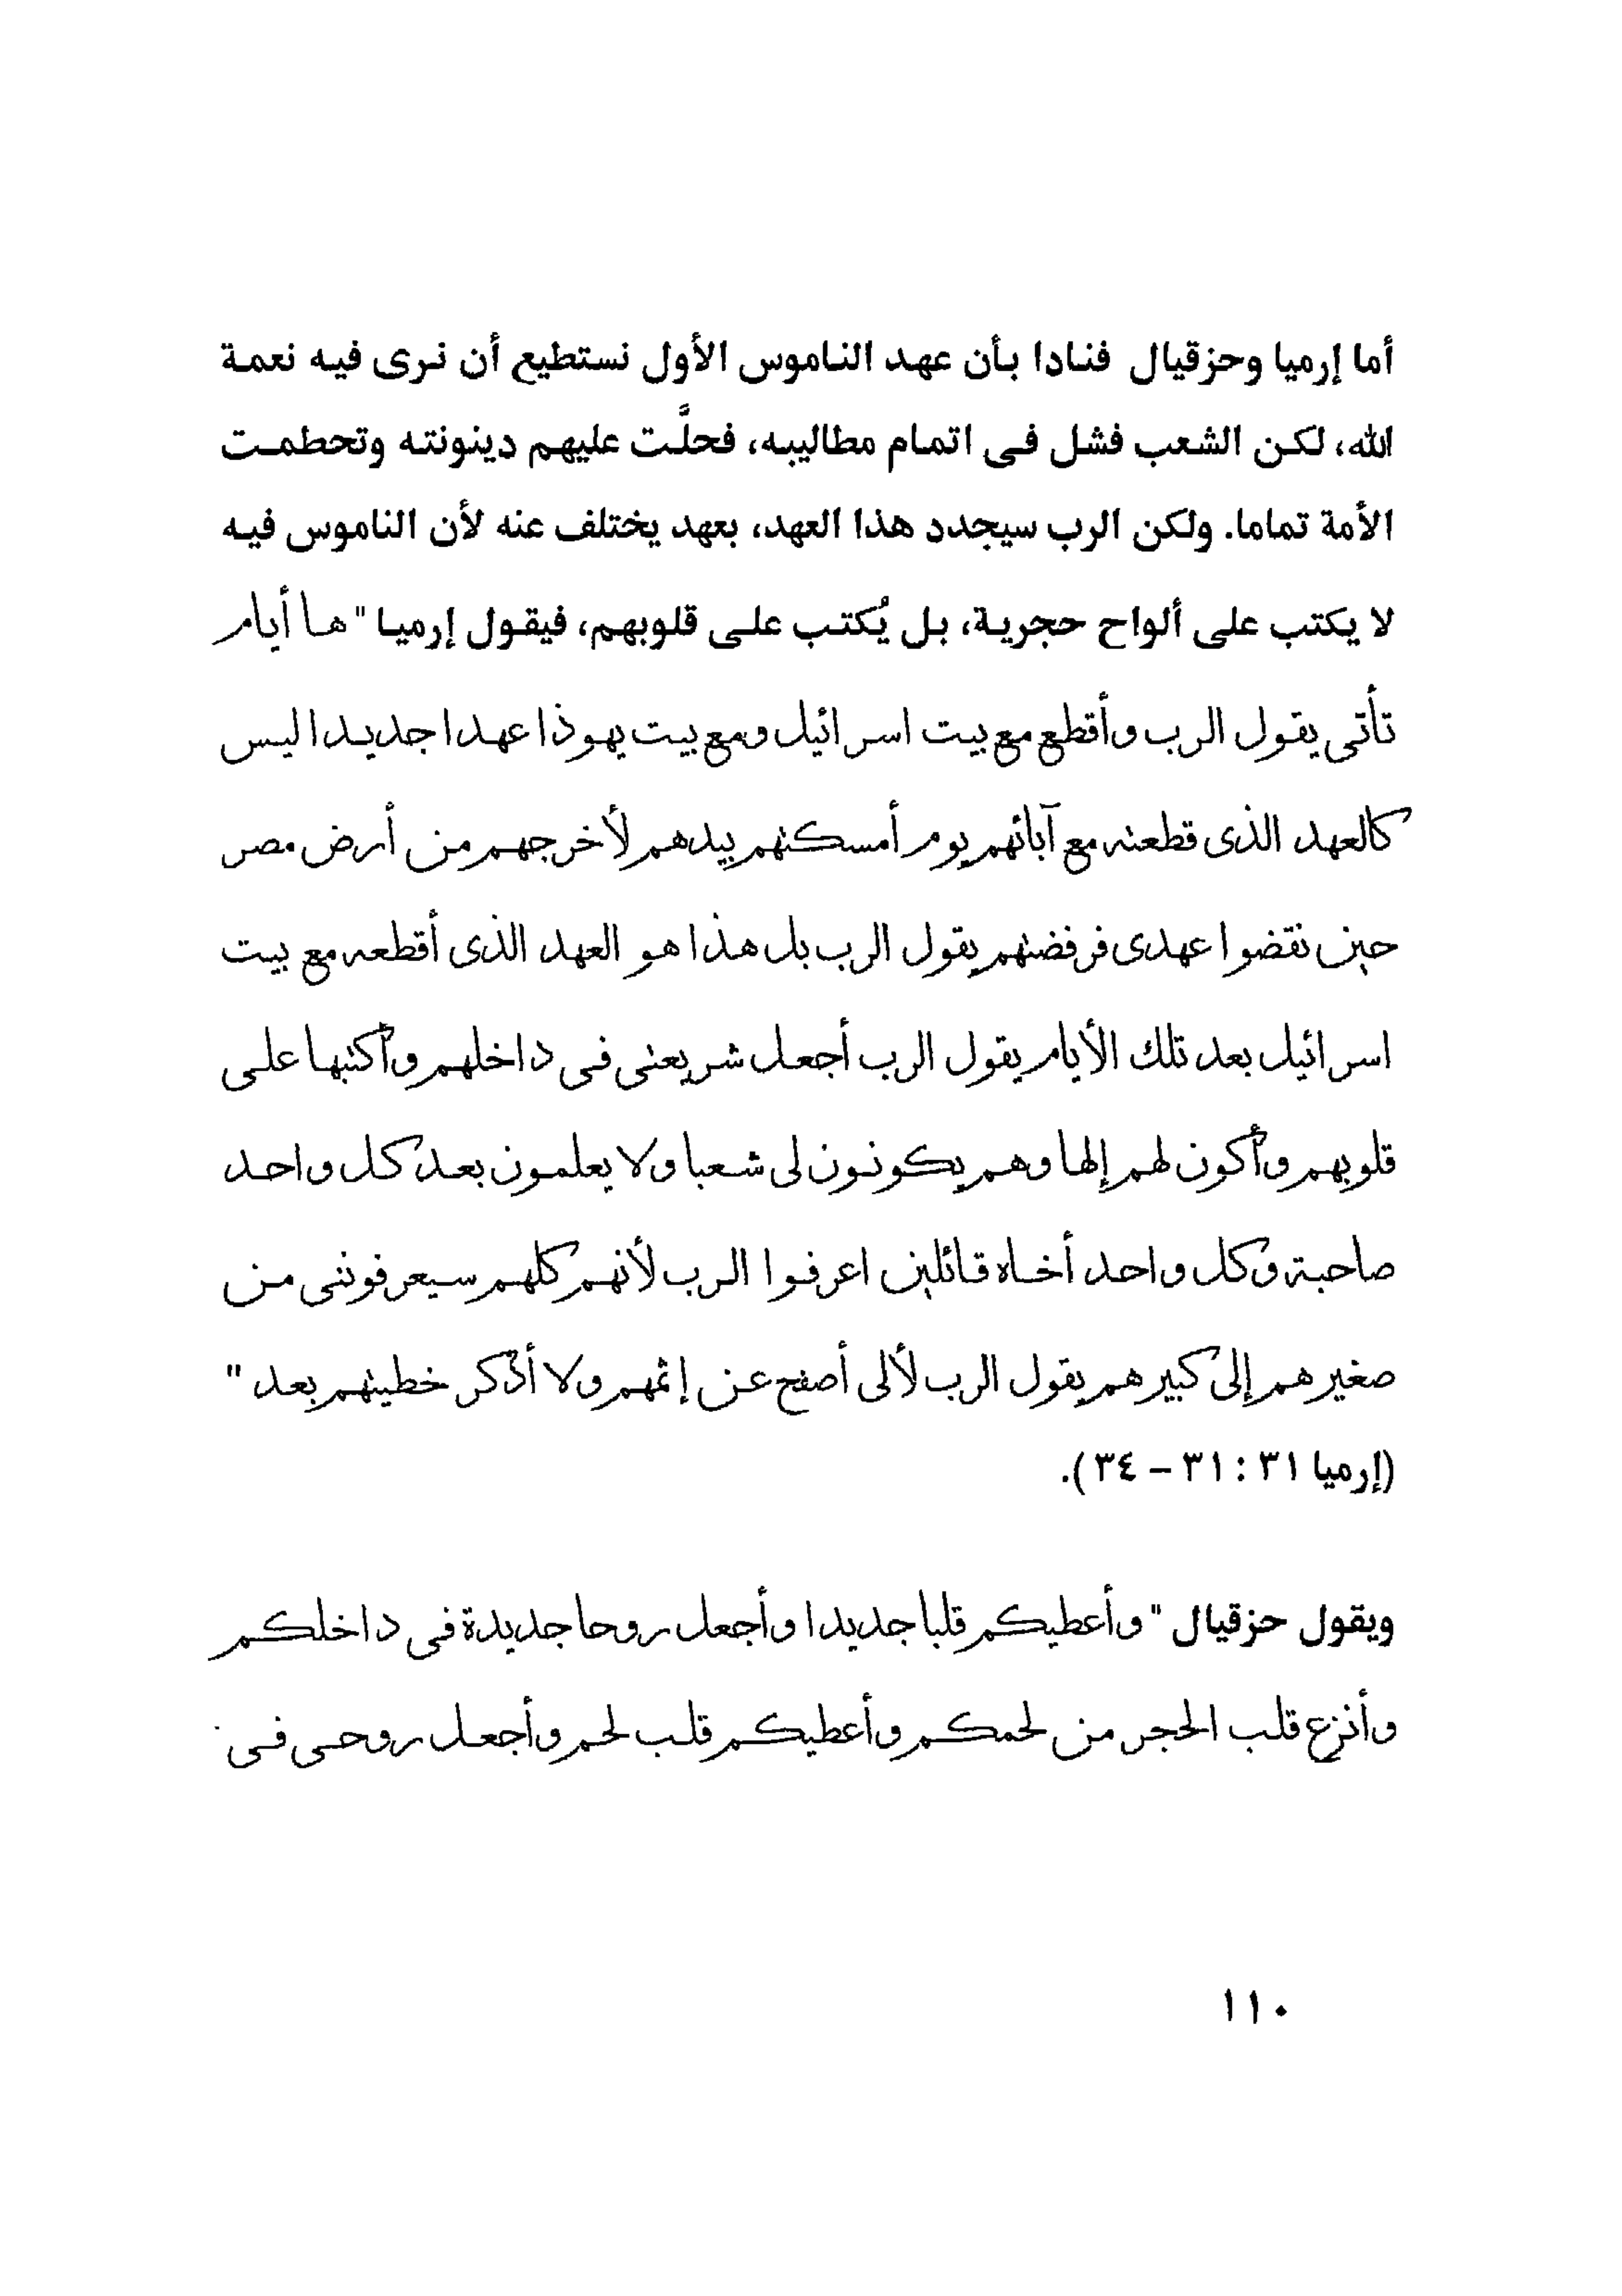 أما إرميا وحزقيال فنادا بأن عهد الناموس الأول نستطيع أن نرى فيه نعمة
الله، لكن الشعب فشل فى اتمام مطاليبه، فحلَّت عليهم دينونته وتحطمت
الأمة تماما. ولكن الرب سيجدد هذا العهد، بعهد يختلف عنه لأن الناموس فيه
لا يكتب على ألواح حجرية، بل يُكتب على قلوبهم، فيقول إرميا " ها أيام
تأتى يقول الرب وأقطع مع بيت اسرائيل ومع بيت يهوذا عهدا جديدا ليس
كالعهد الذى قطعته مع آبائهم يوم أمسكتهم بيدهم لأخرجهم من أرض مصر
حين نقضوا عهدى فرفضتهم يقول الرب بل هذا هو العهد الذى أقطعه مع بيت
اسرائيل بعد تلك الأيام يقول الرب أجعل شريعتى فى داخلهم وأكتبها على
قلوبهم وأكون لهم إلها وهم يكونون لى شعبا ولا يعلمون بعد كل واحد
صاحبة وكل واحد أخاه قائلين اعرفوا الرب لأنهم كلهم سيعرفوننى من
صغيرهم إلى كبيرهم يقول الرب لألى أصفح عن إثمهم ولا أذكر خطيتهم بعد "
(إرميا ٣١ : ٣١ – ٣٤).
ويقول حزقيال " وأعطيكم قلبا جديدا وأجعل روحا جديدة فى داخلكم
وأنزع قلب الحجر من لحمكم وأعطيكم قلب لحم وأجعل روحى فى
١١٠